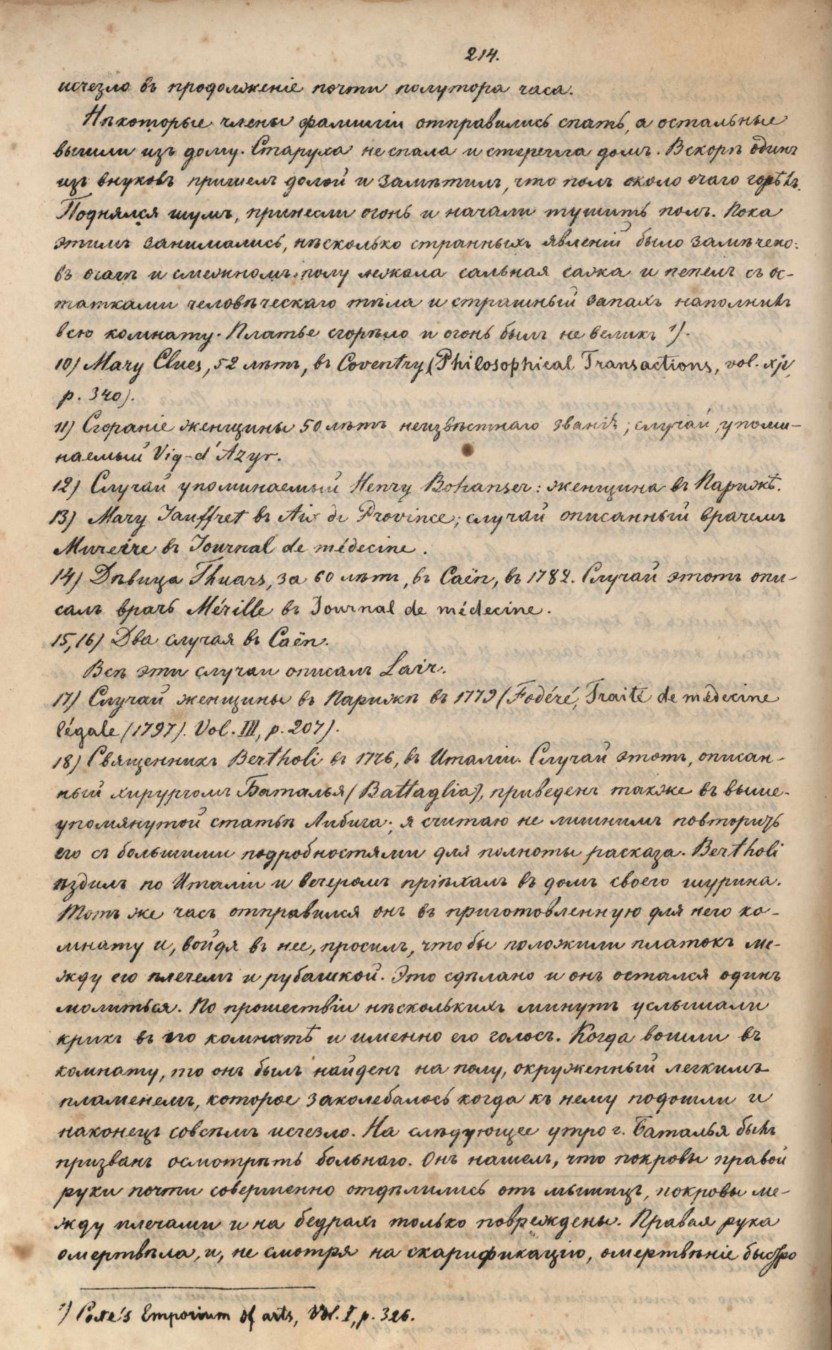 214.
исчезло въ продолженіе почти полутора часа.
Нѣкоторые члены фамиліи отправились спать, а остальные
вышли изъ дому. Старуха не спала и стерегла домъ. Вскорѣ одинъ
изъ внуковъ пришелъ домой и замѣтилъ, что полъ около очага горѣлъ.
Поднялся шумъ, принесли огонь и начали тушить полъ. Пока
этимъ занимались, нѣсколько странныхъ явленій было замѣчено:
въ очагѣ и смежномъ полу лежала сальная сажа и пепелъ съ ос-
татками человѣческаго тѣла и страшный запахъ наполнялъ
всю комнату. Платье сгорѣло и огонь былъ не великъ ¹).
10) Mary Clues, 52 лѣтъ, въ Coventry (Philosophical Transactions, vol. xjv,
p. 340).
11) Сгораніе женщины 50 лѣтъ неизвѣстнаго званія; случай, упоми-
наемый Viq-d'Azyr.
12) Случай упоминаемый Henry Bohanser: женщина въ Парижѣ.
13) Mary Jauffret въ Aix de Province; случай описанный врачемъ
Mureire въ Journal de médecine.
14) Дѣвица Thuars, за 60 лѣтъ, въ Caën, въ 1782. Случай этотъ опи-
салъ врачъ Mérille въ Journal de médecine.
15,16) Два случая въ Caën.
Всѣ эти случаи описалъ Lair.
17) Случай женщины въ Парижѣ въ 1779 (Fodéré, Traité de médecine
légale (1797). Vol. III, p. 207).
18) Священникъ Bertholi въ 1776, въ Италіи. Случай этотъ, описан-
ный хирургомъ Баталья (Battaglia), приведенъ также въ выше-
упомянутой статьѣ Либига; я считаю не лишнимъ повторить
его съ большими подробностями для полноты расказа. Bertholi
ѣздилъ по Италіи и вечеромъ пріѣхалъ въ домъ своего шурина.
Тотъ же часъ отправился онъ въ приготовленную для него ко-
мнату и, войдя въ нее, просилъ, чтобы положили платокъ ме-
жду его плечемъ и рубашкой. Это сдѣлано и онъ остался одинъ
молиться. По прошествіи нѣсколькихъ минутъ услышали
крикъ въ его комнатѣ и именно его голосъ. Когда вошли въ
комнату, то онъ былъ найденъ на полу, окруженный легкимъ
пламенемъ, которое заколебалось когда къ нему подошли и
наконецъ совсѣмъ исчезло. На слѣдующее утро г. Баталья былъ
призванъ осмотрѣть больнаго. Онъ нашелъ, что покровы правой
руки почти совершенно отдѣлились отъ мышицъ, покровы ме-
жду плечами и на бедрахъ только повреждены. Правая рука
омертвѣла, и, не смотря на скарификацію, омертвѣніе быстро
¹) Coxe's Emporium of arts, Vol. I, p. 326.